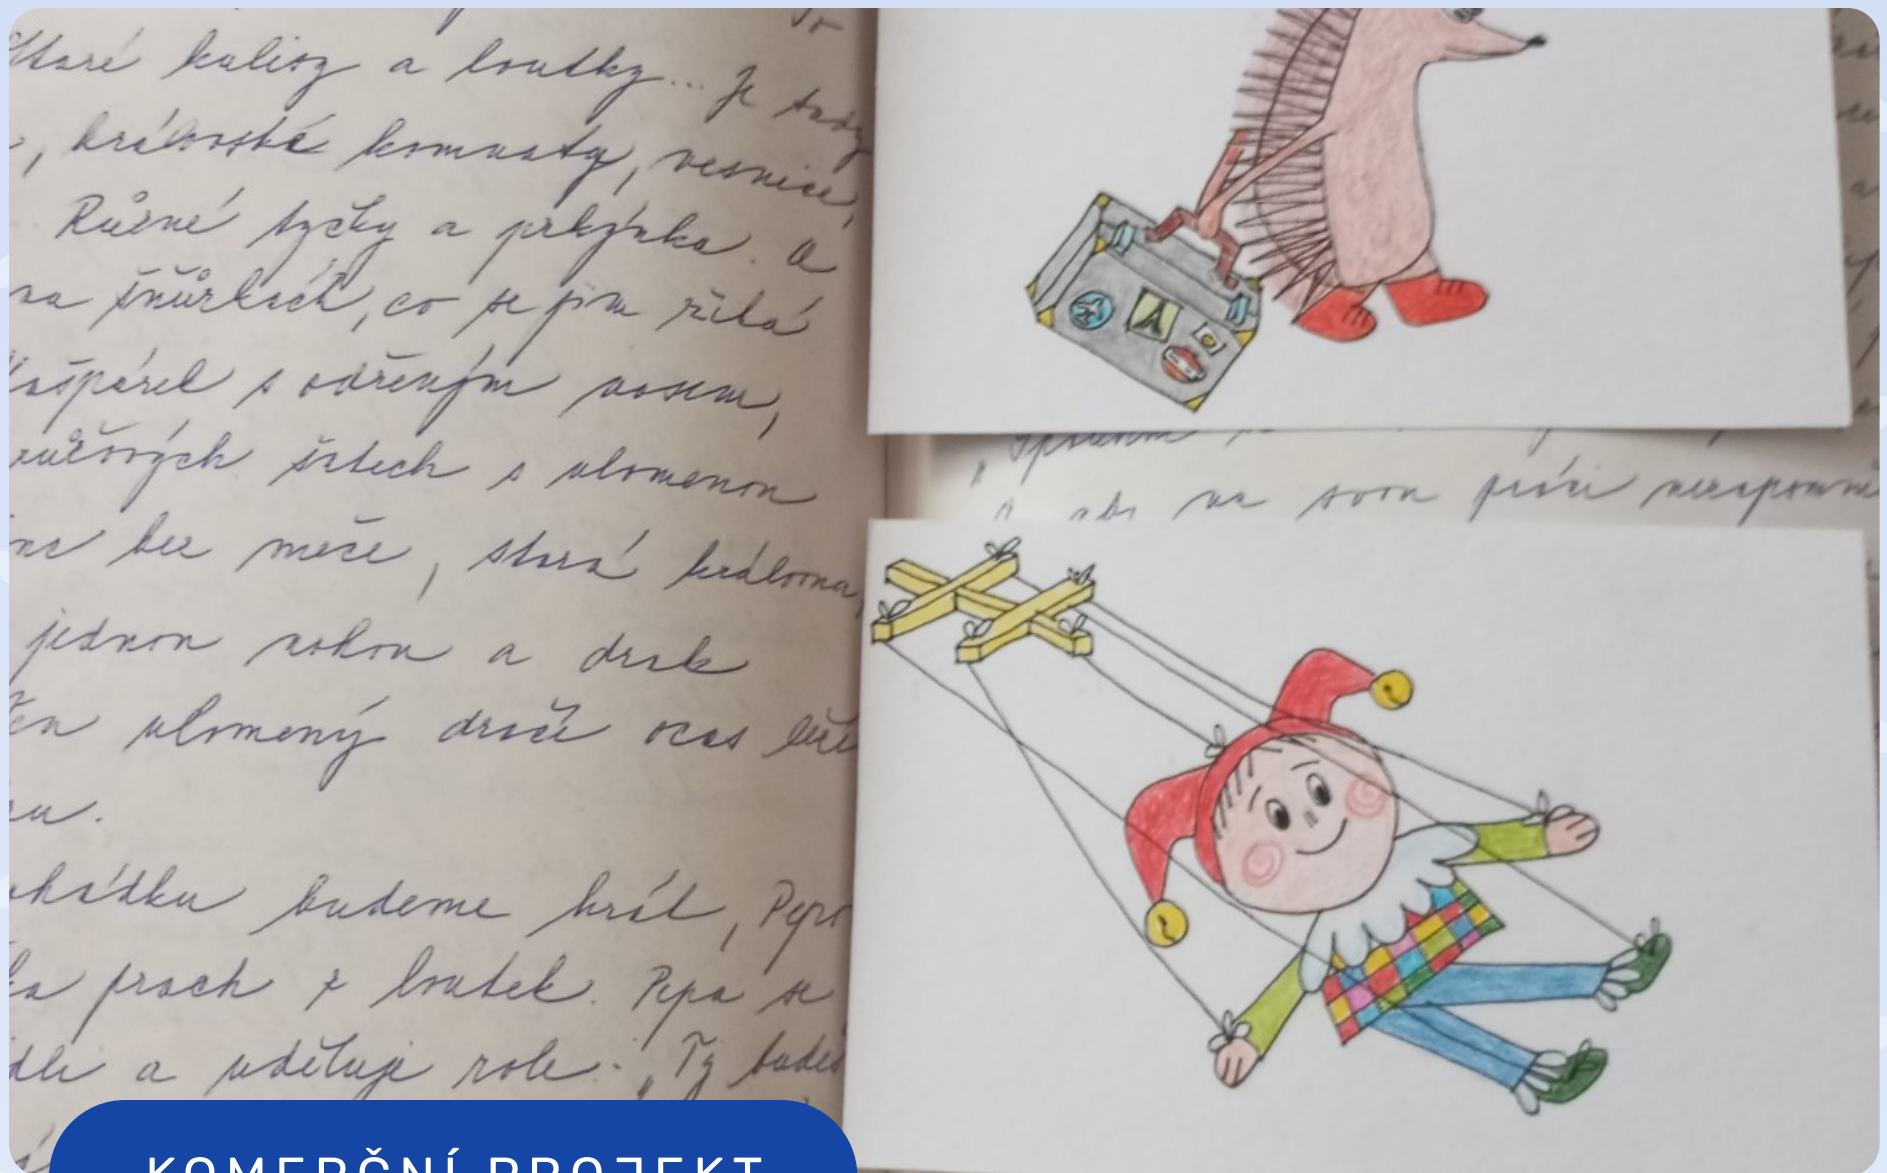 Staré kulisy a loutky... Je tady
, královské komnaty, vesnice,
Různé tyčky a prkýnka. a
na šňůrkách, co se jim říká
Kašpárek s odřeným nosem,
růžových šatech s ulomenou
bez meče, stará královna,
jednou nohou a drak
ulomený dračí ocas leží
pohádku budeme hrát, Pepo
prach z loutek. Pepa se
a uděluje role: „Ty budeš
aby na svou práci nezapomně
KOMERČNÍ PROJEKT